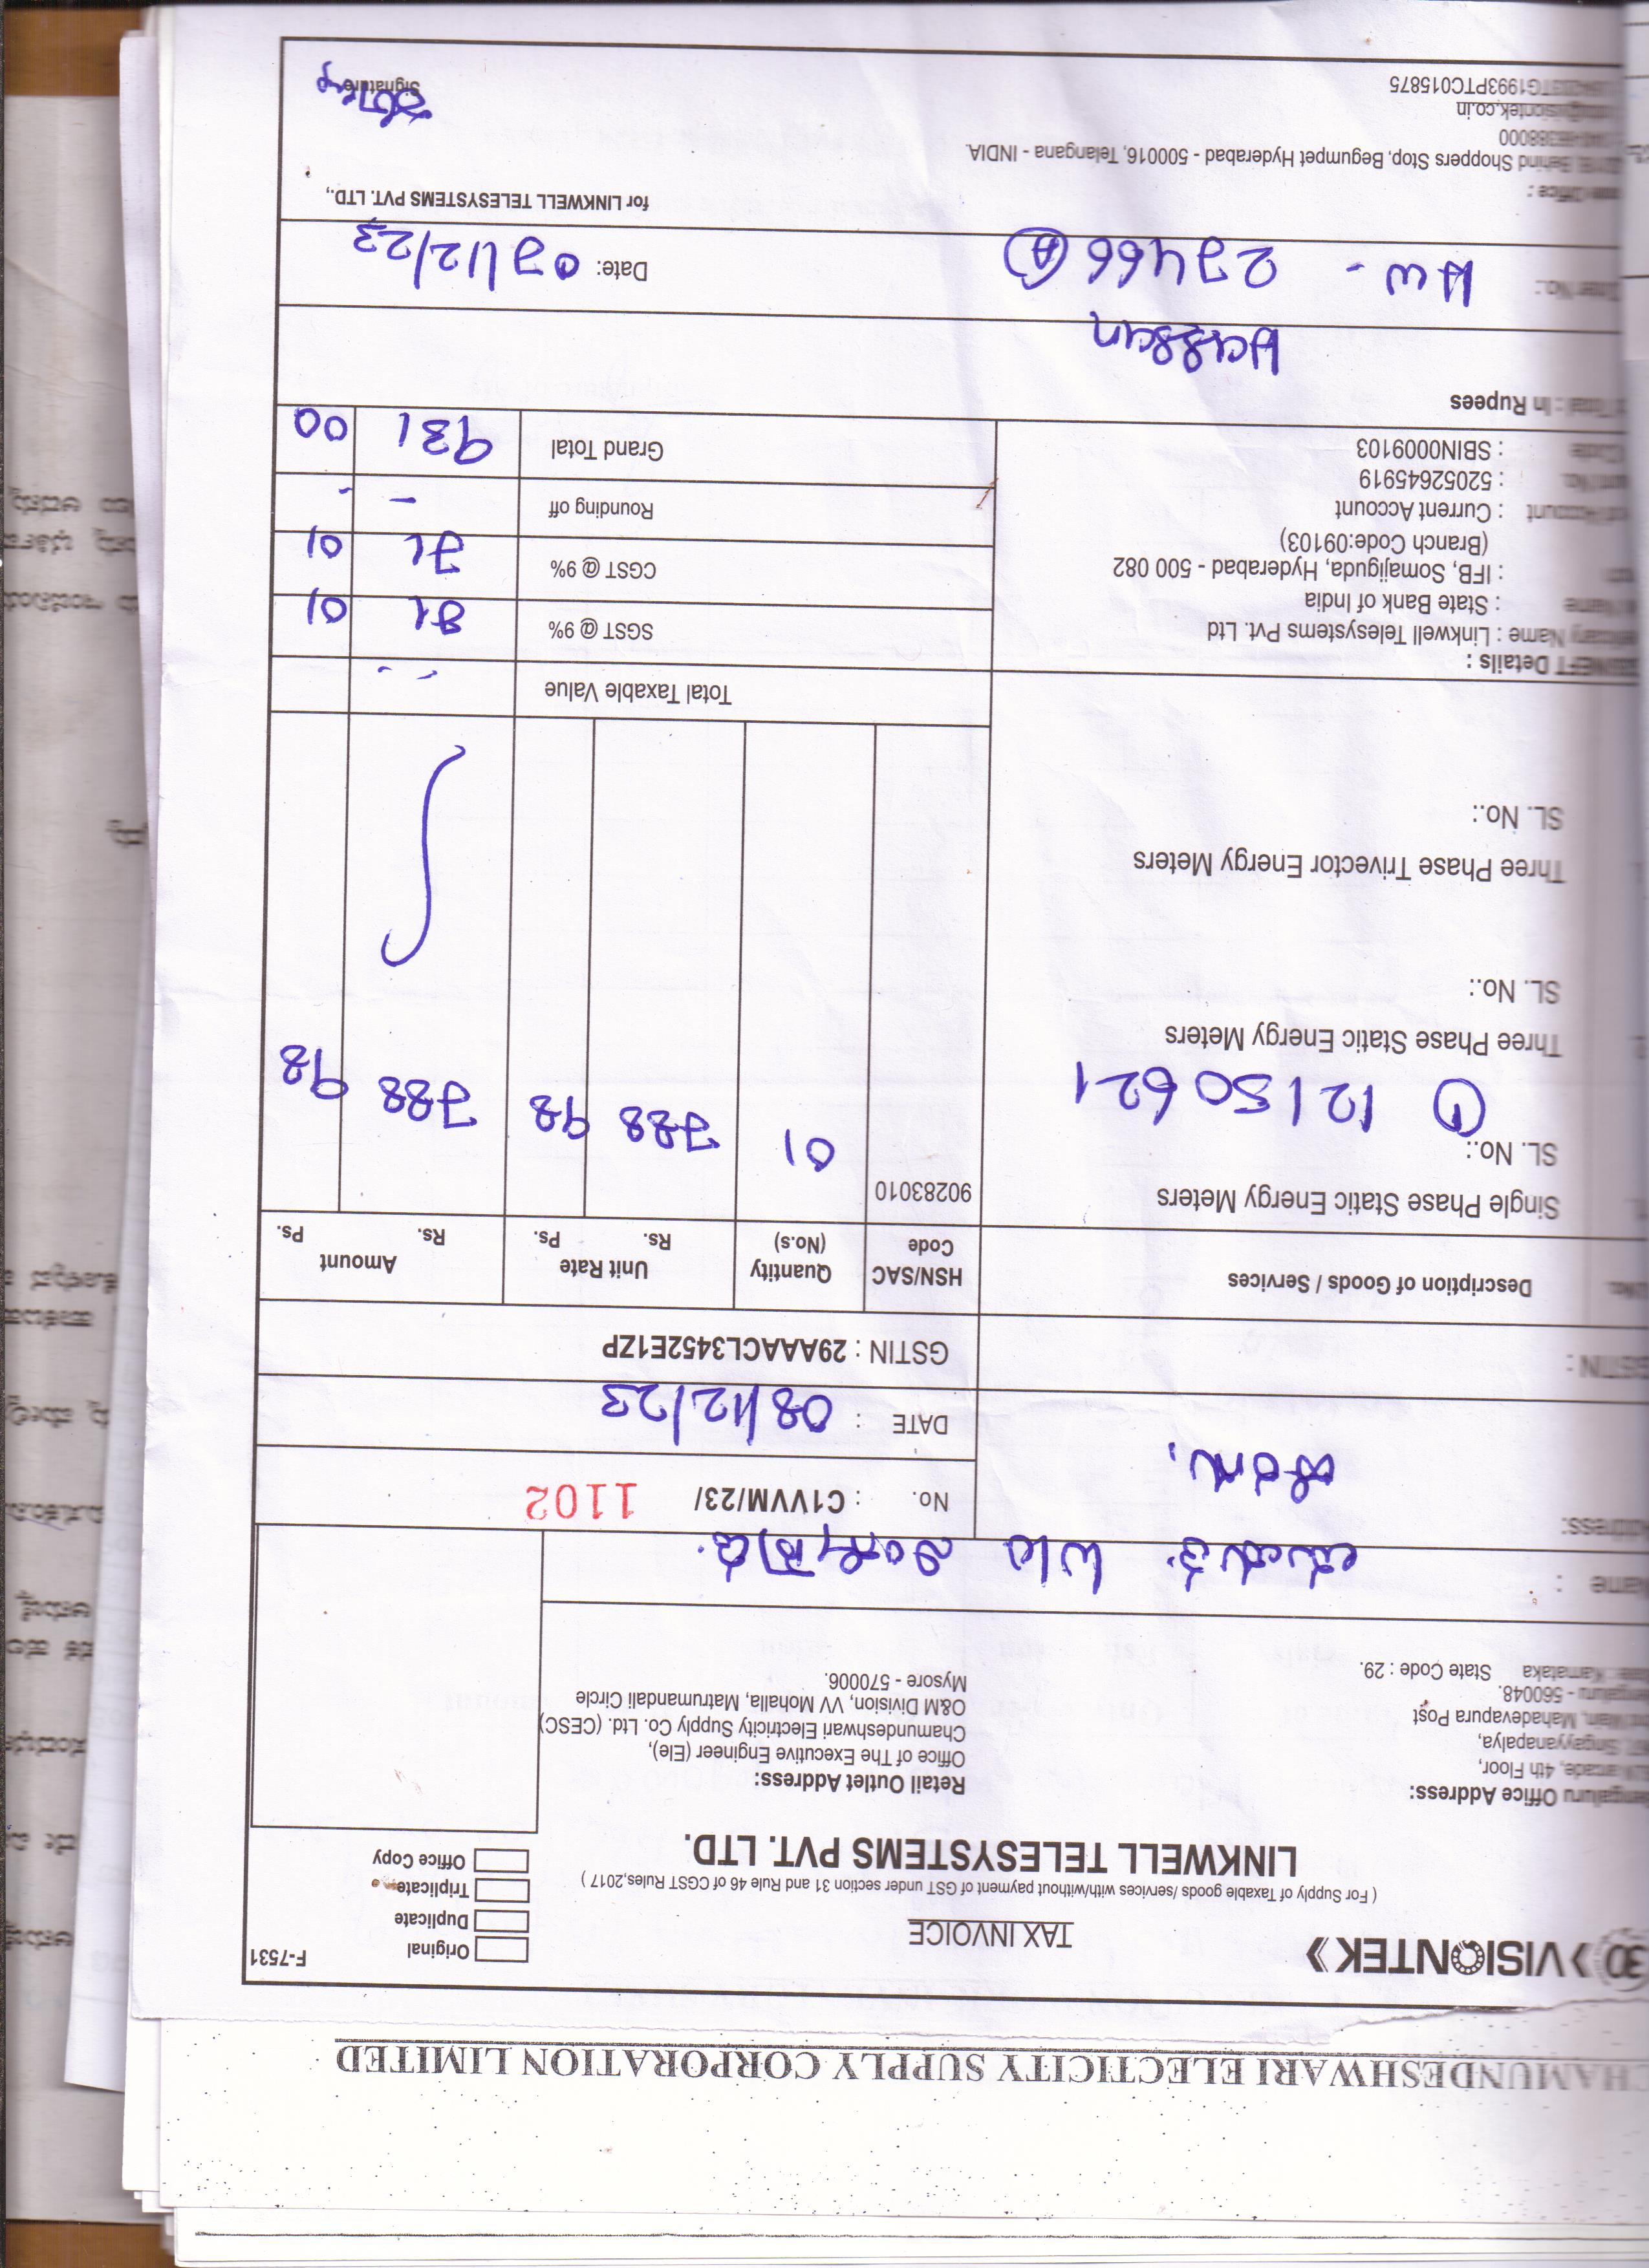 CHAMUNDESHWARI ELECTICITY SUPPLY CORPORATION LIMITED
30 VISIONTEK
TAX INVOICE
F-7531
Original
Duplicate
Triplicate
Office Copy
( For Supply of Taxable goods /services with/without payment of GST under section 31 and Rule 46 of CGST Rules,2017 )
LINKWELL TELESYSTEMS PVT. LTD.
Bengaluru Office Address:
arcade, 4th Floor,
Singayyanapalya,
Main, Mahadevapura Post
Bengaluru - 560048.
Karnataka State Code : 29.
Retail Outlet Address:
Office of The Executive Engineer (Ele),
Chamundeshwari Electricity Supply Co. Ltd. (CESC)
O&M Division, VV Mohalla, Matrumandali Circle
Mysore - 570006.
Name :
W/o
Address:
No. : C1VVM/23/ 1102
DATE : 08/12/23
GSTIN :
GSTIN : 29AAACL3452E1ZP
Description of Goods / Services
HSN/SAC Code
Quantity (No.s)
Unit Rate Rs. Ps.
Amount Rs. Ps.
Single Phase Static Energy Meters
90283010
01 788 98 788 98
SL. No.:
① 12150621
Three Phase Static Energy Meters
SL. No.:
Three Phase Trivector Energy Meters
SL. No.:
Total Taxable Value - -
NEFT Details :
Name : Linkwell Telesystems Pvt. Ltd
SGST @ 9% 71 01
Name : State Bank of India
: IFB, Somajiguda, Hyderabad - 500 082
(Branch Code:09103)
CGST @ 9% 71 01
Account : Current Account
Rounding off - -
: 52052645919
Code : SBIN0009103
Grand Total 931 00
Total : In Rupees
Hassan
HW - 27466 (A)
Date: 07/12/23
for LINKWELL TELESYSTEMS PVT. LTD.,
Office :
Behind Shoppers Stop, Begumpet Hyderabad - 500016, Telangana - INDIA.
66388000
visiontek.co.in
TG1993PTC015875
Signature